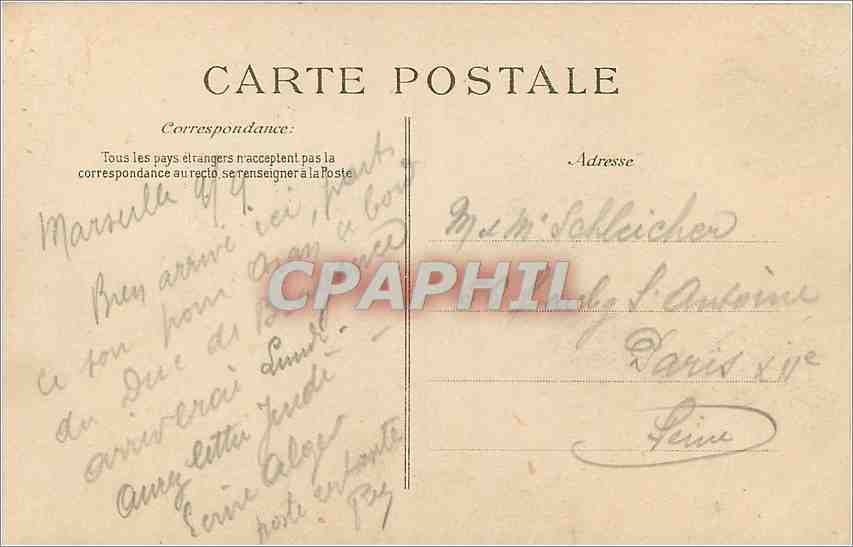 CARTE POSTALE
Correspondance:
Tous les pays étrangers n'acceptent pas la
correspondance au recto, se renseigner à la Poste
Marseille 9/9
Bien arrivé ici, parts
ce soir pour Oran à bord
du Duc de
arriverai Lundi
aurez lettre Jeudi
Ecrire Alger
poste restante
Adresse
M & Me Schleicher
St Antoine
Paris XIIe
Seine
CPAPHIL